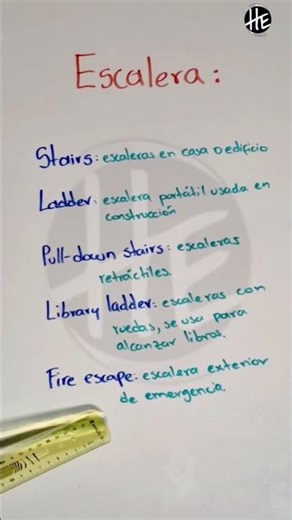 HE
Escalera:
Stairs: escaleras en casa o edificio
Ladder: escalera portátil usada en
construcción
Pull-down stairs: escaleras
retráctiles.
Library ladder: escaleras con
ruedas, se usa para
alcanzar libros.
Fire escape: escalera exterior
de emergencia.